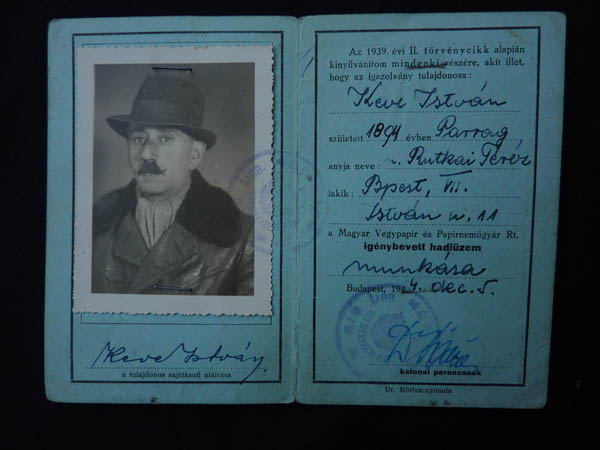 Keve István
a tulajdonos sajátkezű aláírása
Az 1939. évi II. törvénycikk alapján
kinyilvánítom mindenki részére, akit illet,
hogy az igazolvány tulajdonosa:
Keve István
született 1894 évben Parrag
anyja neve: n. Rutkai Teréz
lakik: Bpest, VII.
István u. 11
a Magyar Vegypapir és Papirneműgyár Rt.
igénybevett hadiüzem
munkása
Budapest, 1944. dec. 5.
katonai parancsnok
Dr. Móricz-nyomda